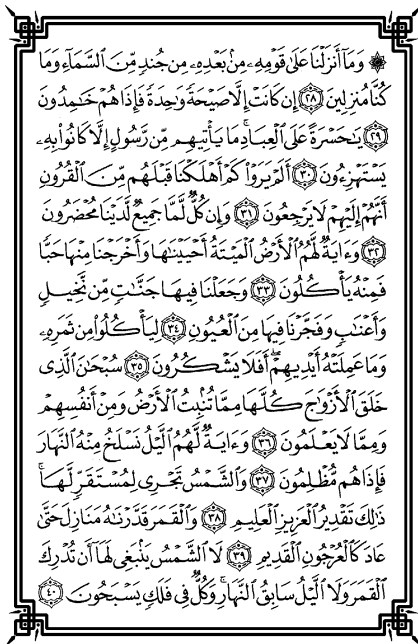 ۞ وَمَآ أَنزَلْنَا عَلَىٰ قَوْمِهِۦ مِنۢ بَعْدِهِۦ مِن جُندٍ مِّنَ ٱلسَّمَآءِ وَمَا
كُنَّا مُنزِلِينَ ﴿٢٨﴾ إِن كَانَتْ إِلَّا صَيْحَةً وَٰحِدَةً فَإِذَا هُمْ خَٰمِدُونَ
﴿٢٩﴾ يَٰحَسْرَةً عَلَى ٱلْعِبَادِ ۚ مَا يَأْتِيهِم مِّن رَّسُولٍ إِلَّا كَانُوا۟ بِهِۦ
يَسْتَهْزِءُونَ ﴿٣٠﴾ أَلَمْ يَرَوْا۟ كَمْ أَهْلَكْنَا قَبْلَهُم مِّنَ ٱلْقُرُونِ
أَنَّهُمْ إِلَيْهِمْ لَا يَرْجِعُونَ ﴿٣١﴾ وَإِن كُلٌّ لَّمَّا جَمِيعٌ لَّدَيْنَا مُحْضَرُونَ
﴿٣٢﴾ وَءَايَةٌ لَّهُمُ ٱلْأَرْضُ ٱلْمَيْتَةُ أَحْيَيْنَٰهَا وَأَخْرَجْنَا مِنْهَا حَبًّا
فَمِنْهُ يَأْكُلُونَ ﴿٣٣﴾ وَجَعَلْنَا فِيهَا جَنَّٰتٍ مِّن نَّخِيلٍ
وَأَعْنَٰبٍ وَفَجَّرْنَا فِيهَا مِنَ ٱلْعُيُونِ ﴿٣٤﴾ لِيَأْكُلُوا۟ مِن ثَمَرِهِۦ
وَمَا عَمِلَتْهُ أَيْدِيهِمْ ۖ أَفَلَا يَشْكُرُونَ ﴿٣٥﴾ سُبْحَٰنَ ٱلَّذِى
خَلَقَ ٱلْأَزْوَٰجَ كُلَّهَا مِمَّا تُنۢبِتُ ٱلْأَرْضُ وَمِنْ أَنفُسِهِمْ
وَمِمَّا لَا يَعْلَمُونَ ﴿٣٦﴾ وَءَايَةٌ لَّهُمُ ٱلَّيْلُ نَسْلَخُ مِنْهُ ٱلنَّهَارَ
فَإِذَا هُم مُّظْلِمُونَ ﴿٣٧﴾ وَٱلشَّمْسُ تَجْرِى لِمُسْتَقَرٍّ لَّهَا ۚ
ذَٰلِكَ تَقْدِيرُ ٱلْعَزِيزِ ٱلْعَلِيمِ ﴿٣٨﴾ وَٱلْقَمَرَ قَدَّرْنَٰهُ مَنَازِلَ حَتَّىٰ
عَادَ كَٱلْعُرْجُونِ ٱلْقَدِيمِ ﴿٣٩﴾ لَا ٱلشَّمْسُ يَنۢبَغِى لَهَآ أَن تُدْرِكَ
ٱلْقَمَرَ وَلَا ٱلَّيْلُ سَابِقُ ٱلنَّهَارِ ۚ وَكُلٌّ فِى فَلَكٍ يَسْبَحُونَ ﴿٤٠﴾